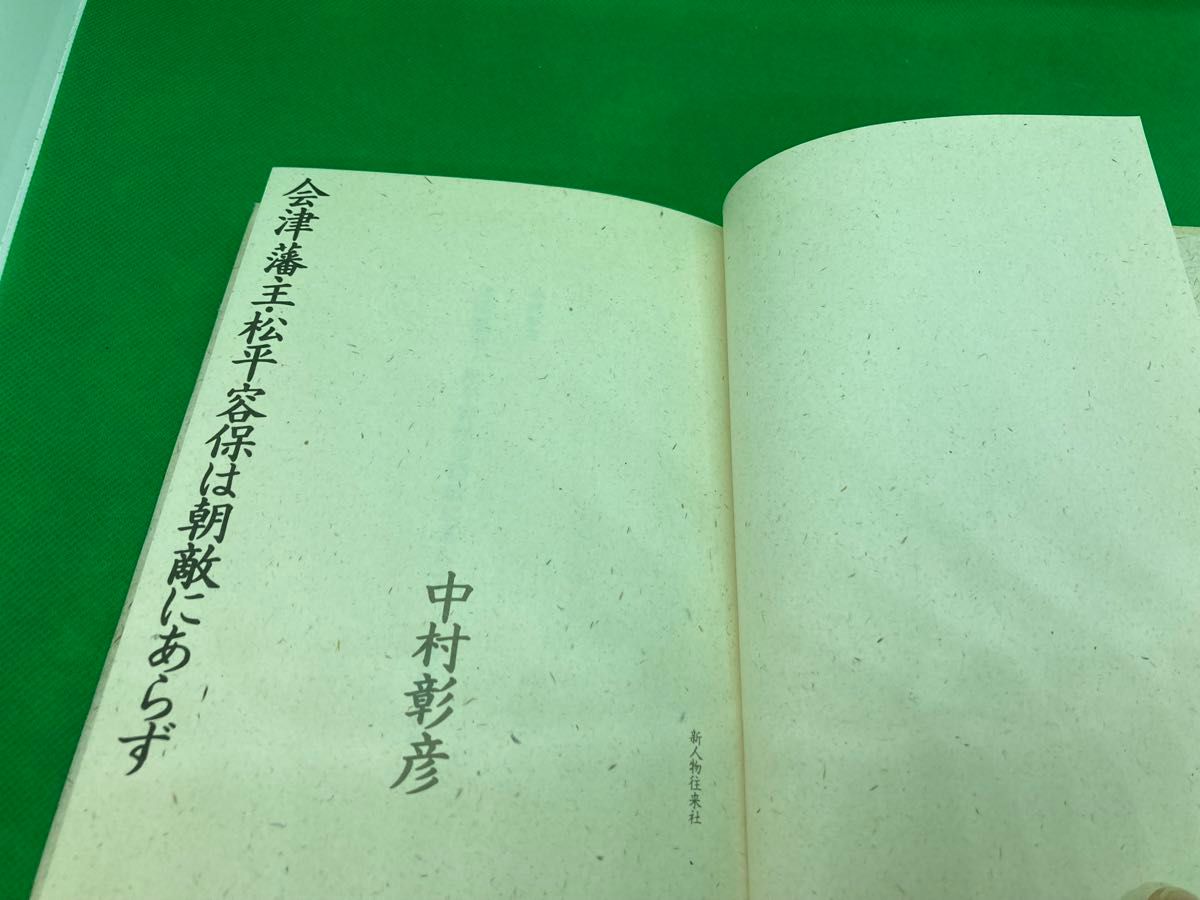 会津藩主・松平容保は朝敵にあらず
中村彰彦
新人物往来社